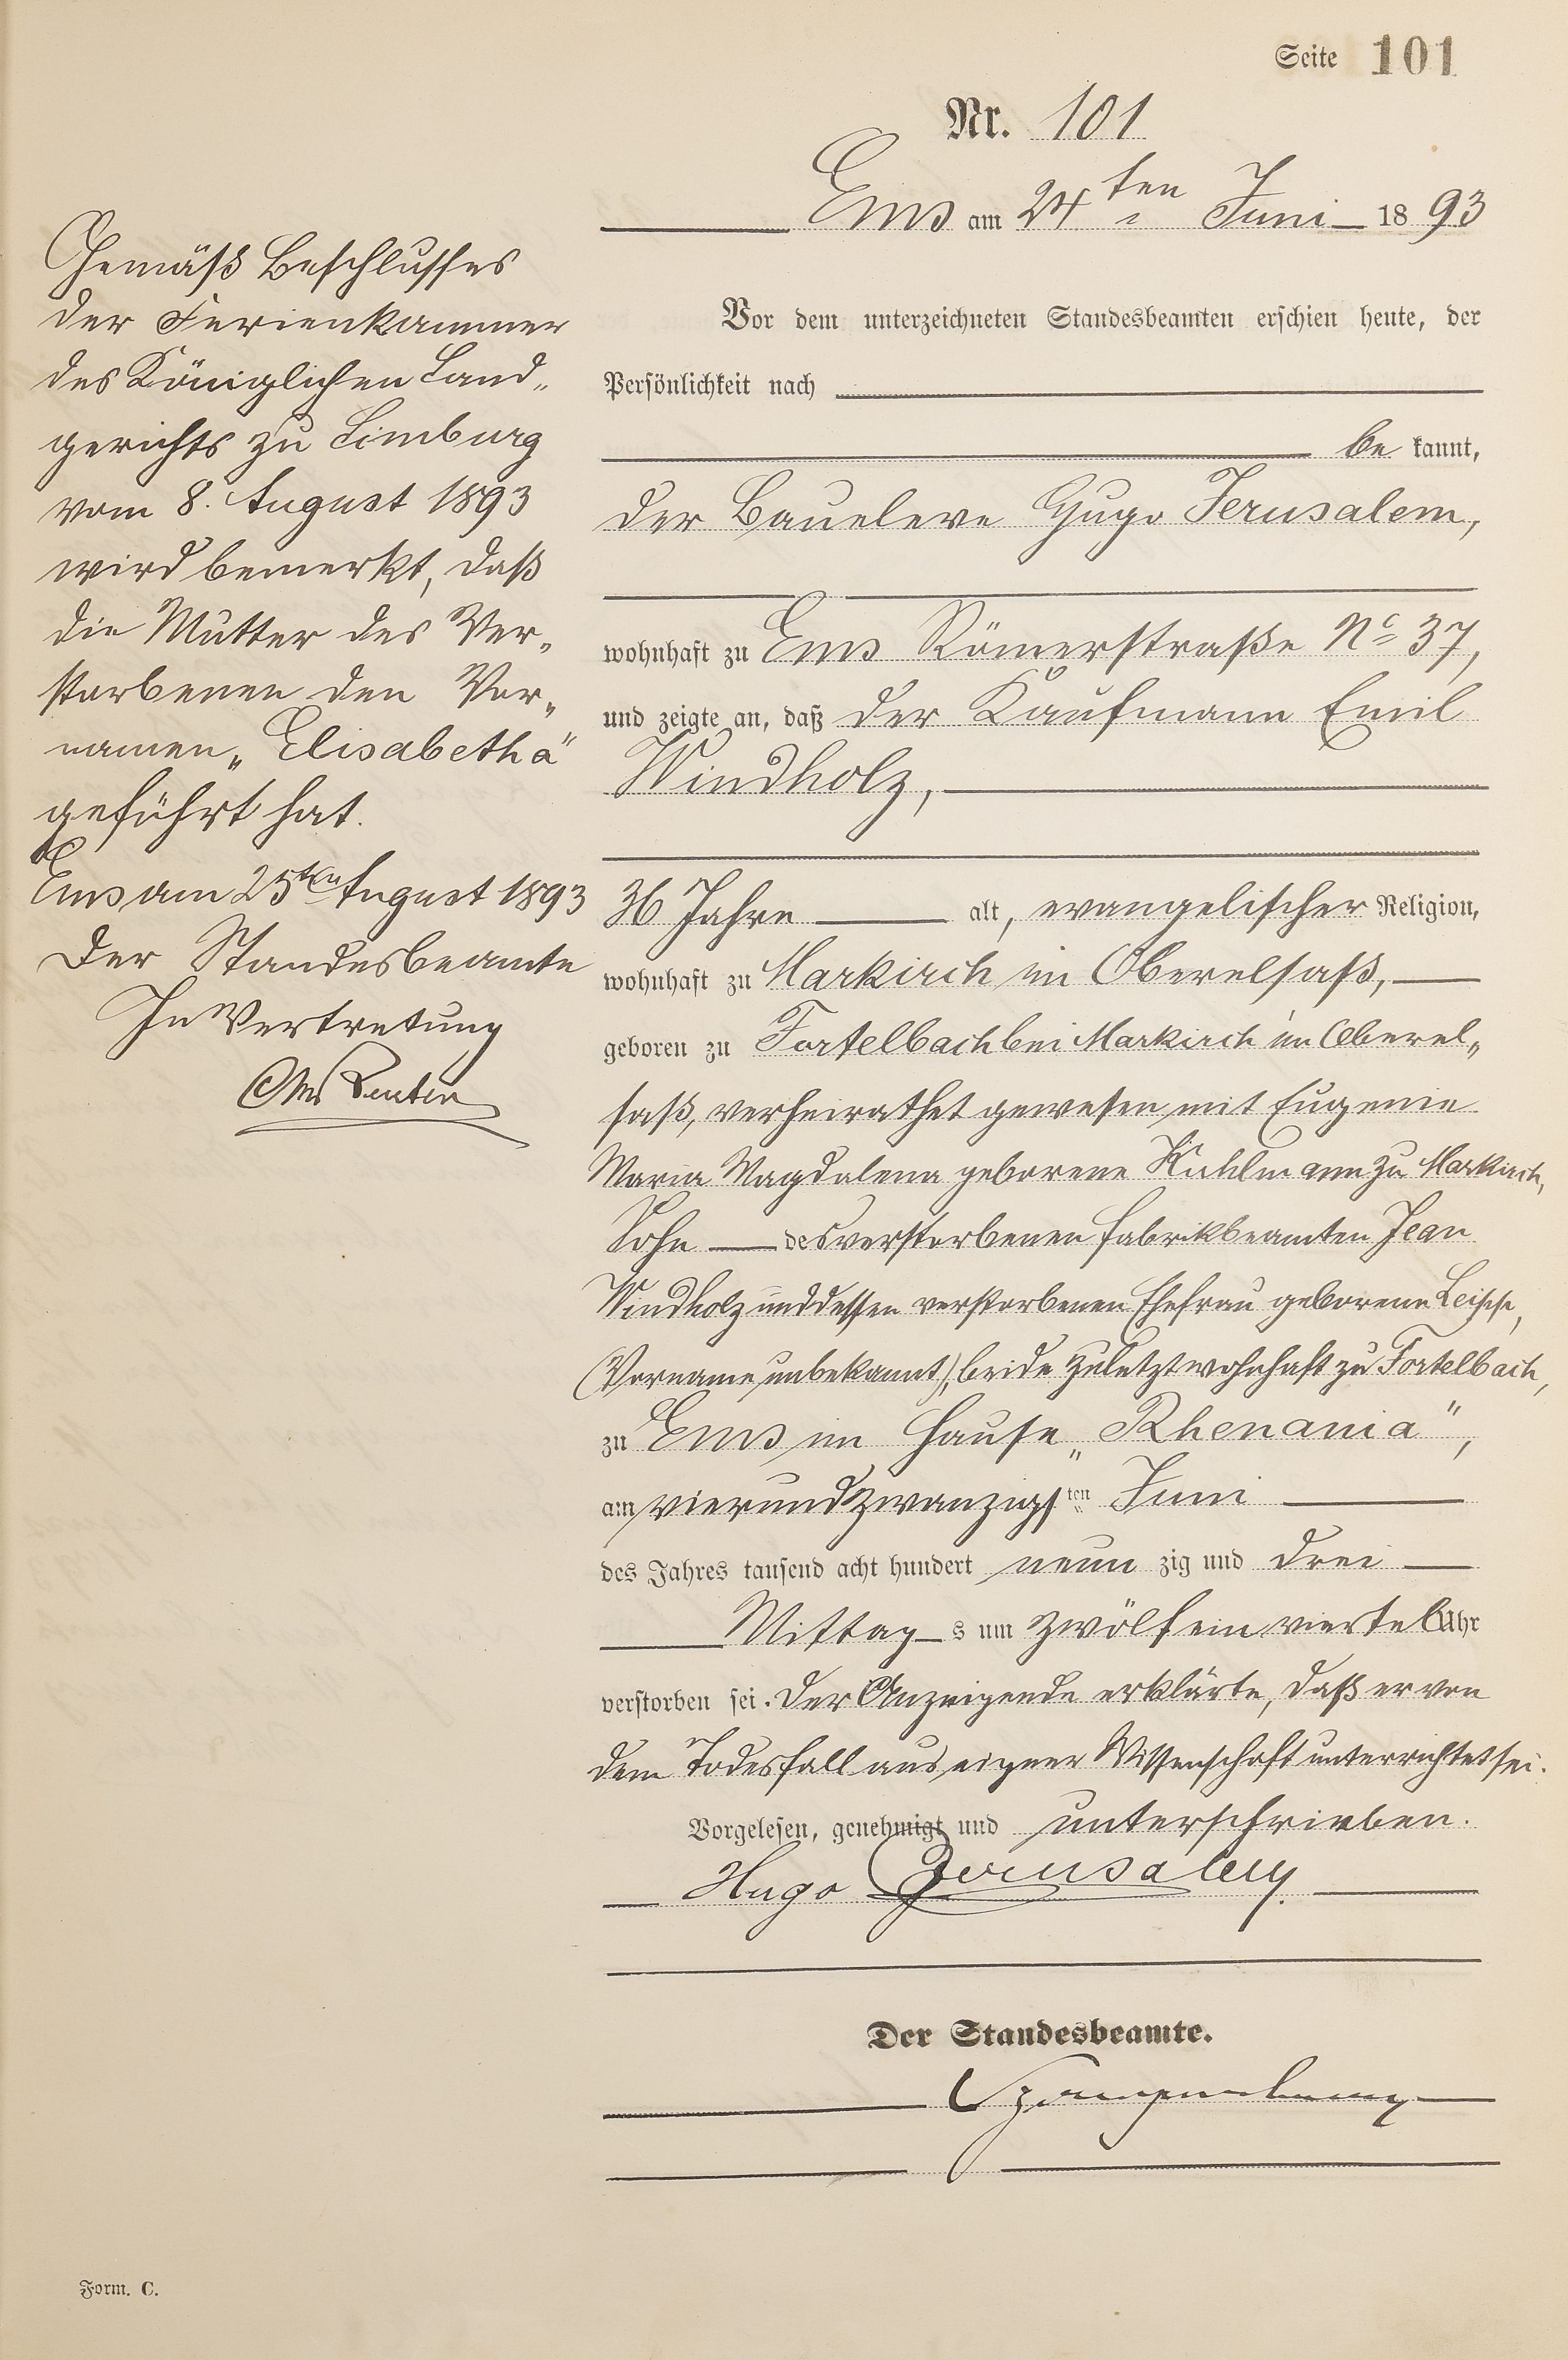 Seite 101
Nr. 101
Ems am 24ten Juni 1893
Vor dem unterzeichneten Standesbeamten erschien heute, der
Persönlichkeit nach
be kannt,
der Baueleve Hugo Jerusalem,
wohnhaft zu Ems Römerstraße No 37,
und zeigte an, daß der Kaufmann Emil
Windholz,
36 Jahre alt, evangelischer Religion,
wohnhaft zu Markirch im Oberelsaß,
geboren zu Fortelbach bei Markirch im Oberel„
saß, verheirathet gewesen mit Eugenie
Maria Magdalena geborene Kuhlmann zu Markirch,
Sohn des verstorbenen Fabrikbeamten Jean
Windholz und dessen verstorbenen Ehefrau geborene
(Vorname unbekannt), beide zuletzt wohnhaft zu Fortelbach,
zu Ems im Hause „Rhenania",
am vierundzwanzigsten Juni
des Jahres tausend acht hundert neun zig und drei
Mittag s um zwölf ein viertel Uhr
verstorben sei. Der Anzeigende erklärte, daß er von
dem Todesfall aus eigner Wissenschaft unterrichtet sei.
Vorgelesen, genehmigt und unterschrieben.
Hugo Jerusalem
Der Standesbeamte.
Gemäß Beschlusses
der Ferienkammer
des Königlichen Land„
gerichts zu Limburg
vom 8. August 1893
wird bemerkt, daß
die Mutter des Ver„
storbenen den Vor„
namen „Elisabetha"
geführt hat.
Ems am 25ten August 1893
Der Standesbeamte
In Vertretung
Form. C.